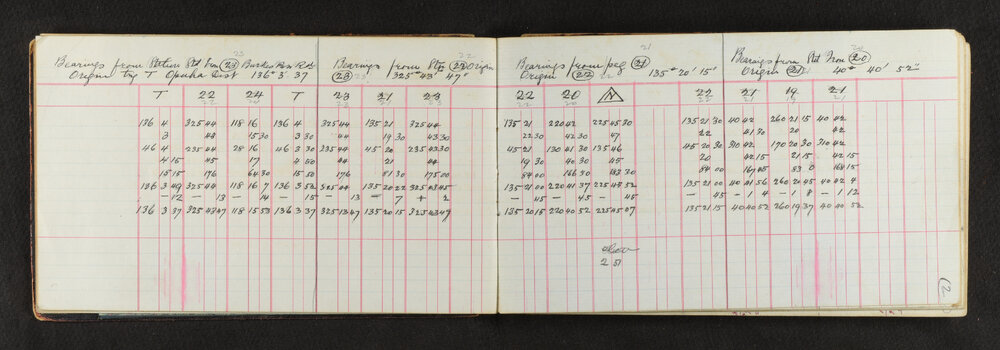 Bearings from Station Std Iron (23) 23
Origin Trig T Opuha Dist 136° 3' 37
T 22 24 T
22 24
136 4 325 44 118 16 136 4
3 44 15 30 3 30
46 4 235 44 28 16 46 3 30
4 15 45 17 4 00
15 15 176 64 30 15 50
136 3 49 325 44 118 16 7 136 3 52
— 12 — 13 — 14 — 15
136 3 37 325 43 47 118 15 53 136 3 37
Bearings from Stn (22) Origin 22
(23) 23 325° 43' 47"
23 21 23
23 21 23
325 44 135 21 325 44
44 19 30 43 30
235 44 45 20 235 43 30
44 21 44
176 81 30 175 00
325 44 135 20 22 325 43 45
— 13 — 7 + 2
325 43 47 135 20 15 325 43 47
Bearings from peg (21) 21
Origin (22) 22 135° 20' 15"
22 20 N
22 20
135 21 220 42 225 45 30
22 30 42 30 47
45 21 130 41 30 135 46
19 30 40 30 45
84 00 166 30 183 30
135 21 00 220 41 37 225 45 52
— 45 — 45 — 45
135 20 15 220 40 52 225 45 07
2 51
Bearings from Std Iron (20) 20
Origin (21) 21 40° 40' 52"
22 21 19 21
22 21 19 21
135 21 30 40 42 260 21 15 40 42
22 41 30 20 42
45 20 30 310 42 170 20 30 310 42
20 42 15 21 15 42 15
84 00 167 45 83 0 168 15
135 21 00 40 41 56 260 20 45 40 42 4
— 45 — 1 4 — 1 8 — 1 12
135 21 15 40 40 52 260 19 37 40 40 52